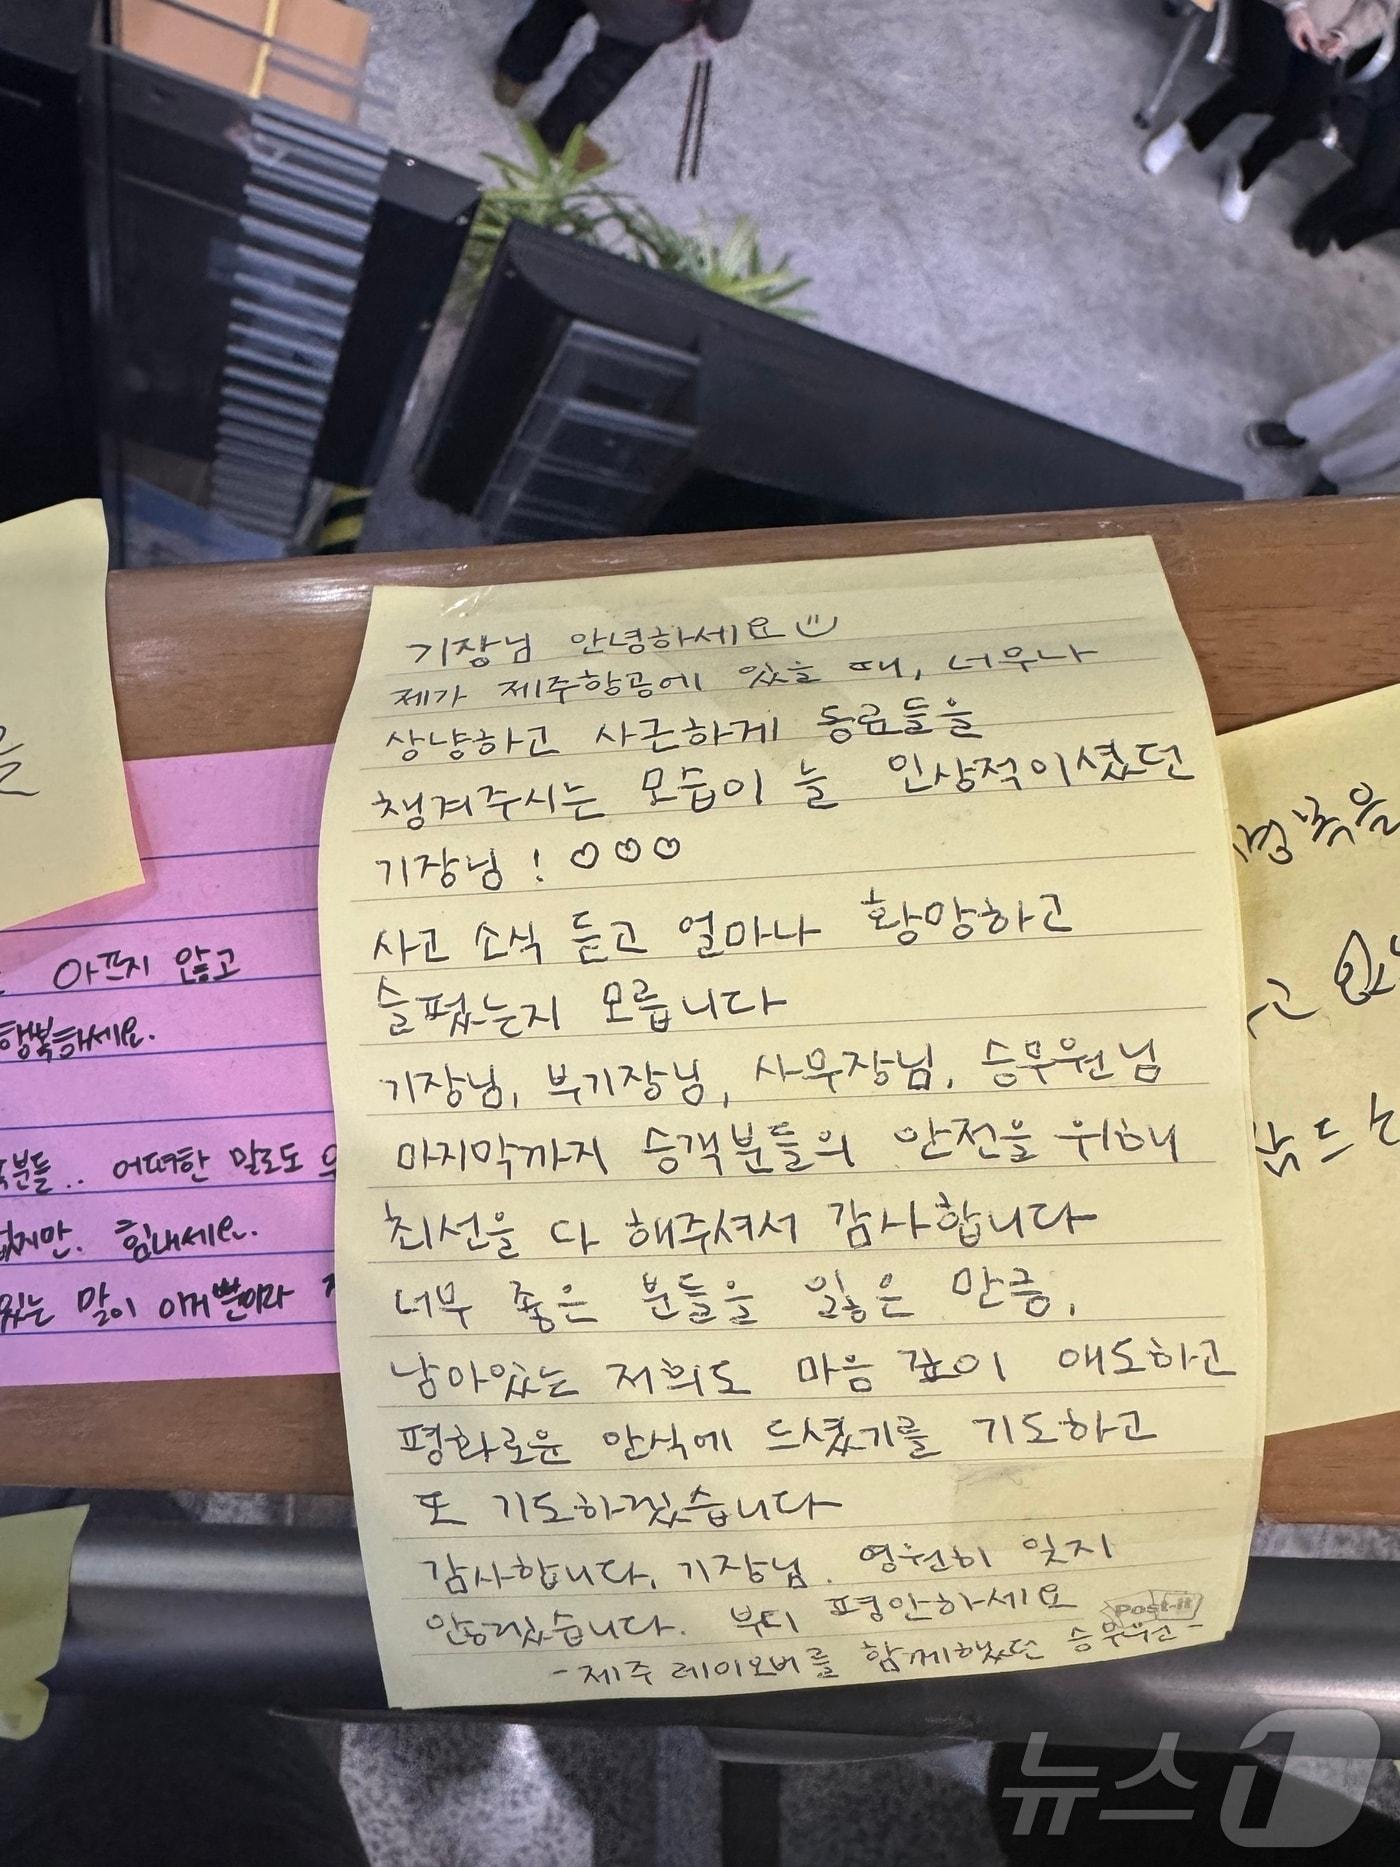 기장님 안녕하세요
제가 제주항공에 있을 때, 너무나
상냥하고 사근하게 동료들을
챙겨주시는 모습이 늘 인상적이셨던
기장님! ♡♡♡
사고 소식 듣고 얼마나 황망하고
슬펐는지 모릅니다
기장님, 부기장님, 사무장님, 승무원님
마지막까지 승객분들의 안전을 위해
최선을 다 해주셔서 감사합니다
너무 좋은 분들을 잃은 만큼,
남아있는 저희도 마음 깊이 애도하고
평화로운 안식에 드셨기를 기도하고
또 기도하겠습니다
감사합니다, 기장님. 영원히 잊지
않겠습니다. 부디 평안하세요
Post-it
-제주 레이오버를 함께했던 승무원-
을
아프지 않고
행복하세요.
분들.. 어떠한 말로도
없지만. 힘내세요.
있는 말이 이거뿐이라
명복을
고
뉴스1